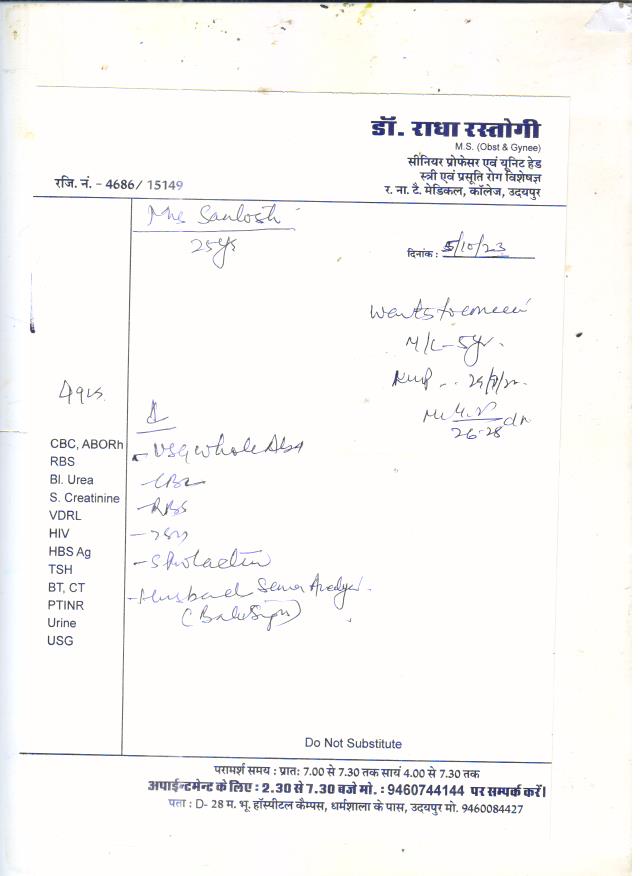 डॉ. राधा रस्तोगी
M.S. (Obst & Gynee)
सीनियर प्रोफेसर एवं यूनिट हेड
स्त्री एवं प्रसूति रोग विशेषज्ञ
र. ना. टै. मेडिकल, कॉलेज, उदयपुर
रजि. नं. - 4686/ 15149
Mrs Santosh
25yr
दिनांक : 5/10/23
wants to conceive
M/L - 5yr.
26-28
CBC, ABORh
RBS
Bl. Urea
S. Creatinine
VDRL
HIV
HBS Ag
TSH
BT, CT
PTINR
Urine
USG
- USG whole Abd
- CBC
- RBS
- TSH
- S Prolactin
- Husband Semen Analysis.
Do Not Substitute
परामर्श समय : प्रातः 7.00 से 7.30 तक सायं 4.00 से 7.30 तक
अपाईन्टमेन्ट के लिए : 2.30 से 7.30 बजे मो. : 9460744144 पर सम्पर्क करें।
पता : D- 28 म. भू. हॉस्पीटल कैम्पस, धर्मशाला के पास, उदयपुर मो. 9460084427